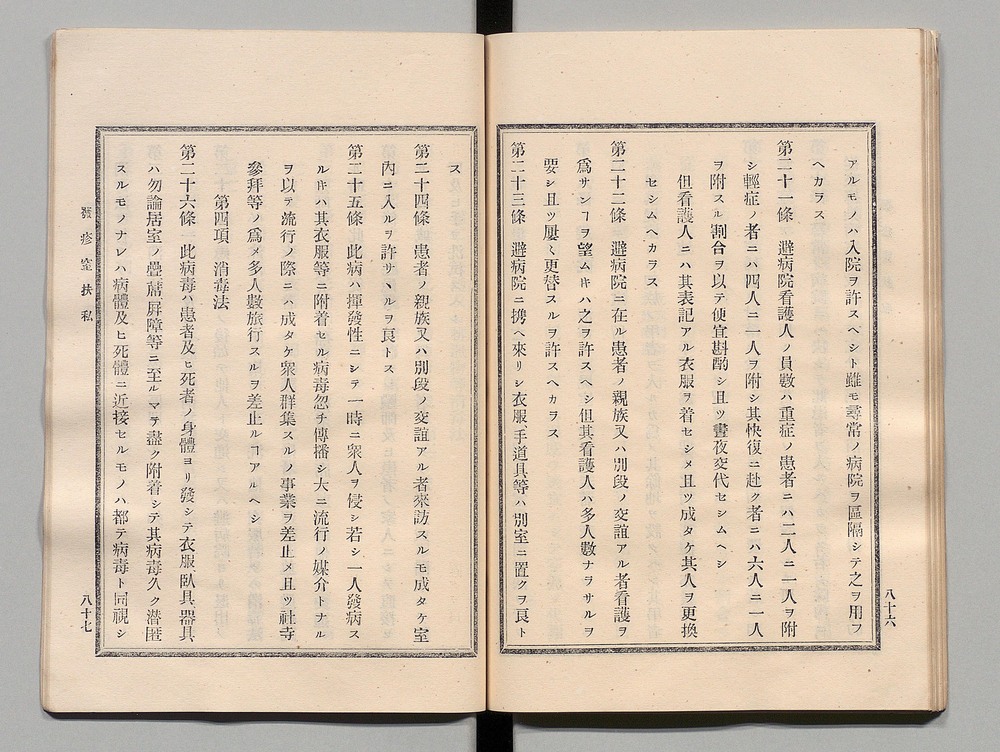 アルモノハ入院ヲ許スヘシト雖モ尋常ノ病院ヲ區隔シテ之ヲ用フ
ヘカラス
第二十一條 避病院看護人ノ員數ハ重症ノ患者ニハ二人ニ一人ヲ附
シ輕症ノ者ニハ四人ニ一人ヲ附シ其快復ニ赴ク者ニハ六人ニ一人
ヲ附スル割合ヲ以テ便宜斟酌シ且ツ晝夜交代セシムヘシ
但看護人ニハ其表記アル衣服ヲ着セシメ且ツ成タケ其人ヲ更換
セシムヘカラス
第二十二條 避病院ニ在ル患者ノ親族又ハ別段ノ交誼アル者看護ヲ
爲サンヿヲ望ムトキハ之ヲ許スヘシ但其看護人ハ多人數ナヲサルヲ
要シ且ツ屢々更替スルヲ許スヘカヲス
第二十三條 避病院ニ携ヘ來リシ衣服手道具等ハ別室ニ置クヲ良ト
八十六
ス
第二十四條 患者ノ親族又ハ別段ノ交誼アル者來訪スルモ成タケ室
內ニ入ルヲ許サヽルヲ良トス
第二十五條 此病ハ揮發性ニシテ一時ニ衆人ヲ侵シ若シ一人發病ス
ルトキハ其衣服等ニ附着セル病毒忽チ傳播シ大ニ流行ノ媒介トナル
ヲ以テ流行ノ際ニハ成タケ衆人群集スルノ事業ヲ差止メ且ツ社寺
參拜等ノ爲メ多人數旅行スルヲ差止ルヿアルヘシ
第四項 消毒法
第二十六條 此病毒ハ患者及ヒ死者ノ身體ヨリ發シテ衣服臥具器具
ハ勿論居室ノ疊蓆屛障等ニ至ルマテ盡ク附着シテ其病毒久ク潛匿
スルモノナレハ病體及ヒ死體ニ近接セルモノハ都テ病毒ト同視シ
發疹窒扶私
八十七